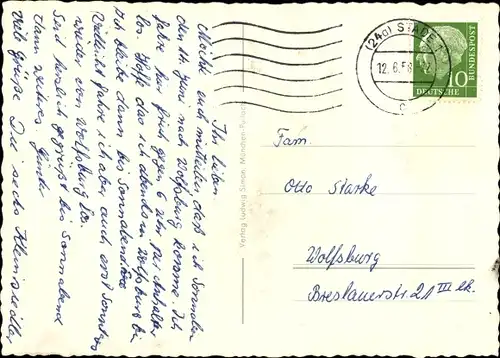 Ihr Lieben
Möchte euch mitteilen daß ich Sonnabend
den 14. Juni nach Wolfsburg komme. Ich
fahre hier früh gegen 6 Uhr
los. Hoffe das ich abends in Wolfsburg bin
Ich bleibe dann bis Sonnabend
Vielleicht fahre ich aber auch erst Sonntag
weiter von Wolfsburg
Seid herzlich gegrüßt bis Sonnabend
dann
viele Grüße
(24a) STADE
12.6.58
c
10
DEUTSCHE
BUNDESPOST
Verlag Ludwig Simon, München-Pullach
Fam.
Otto Starke
Wolfsburg
Breslauerstr. 21 III lk.